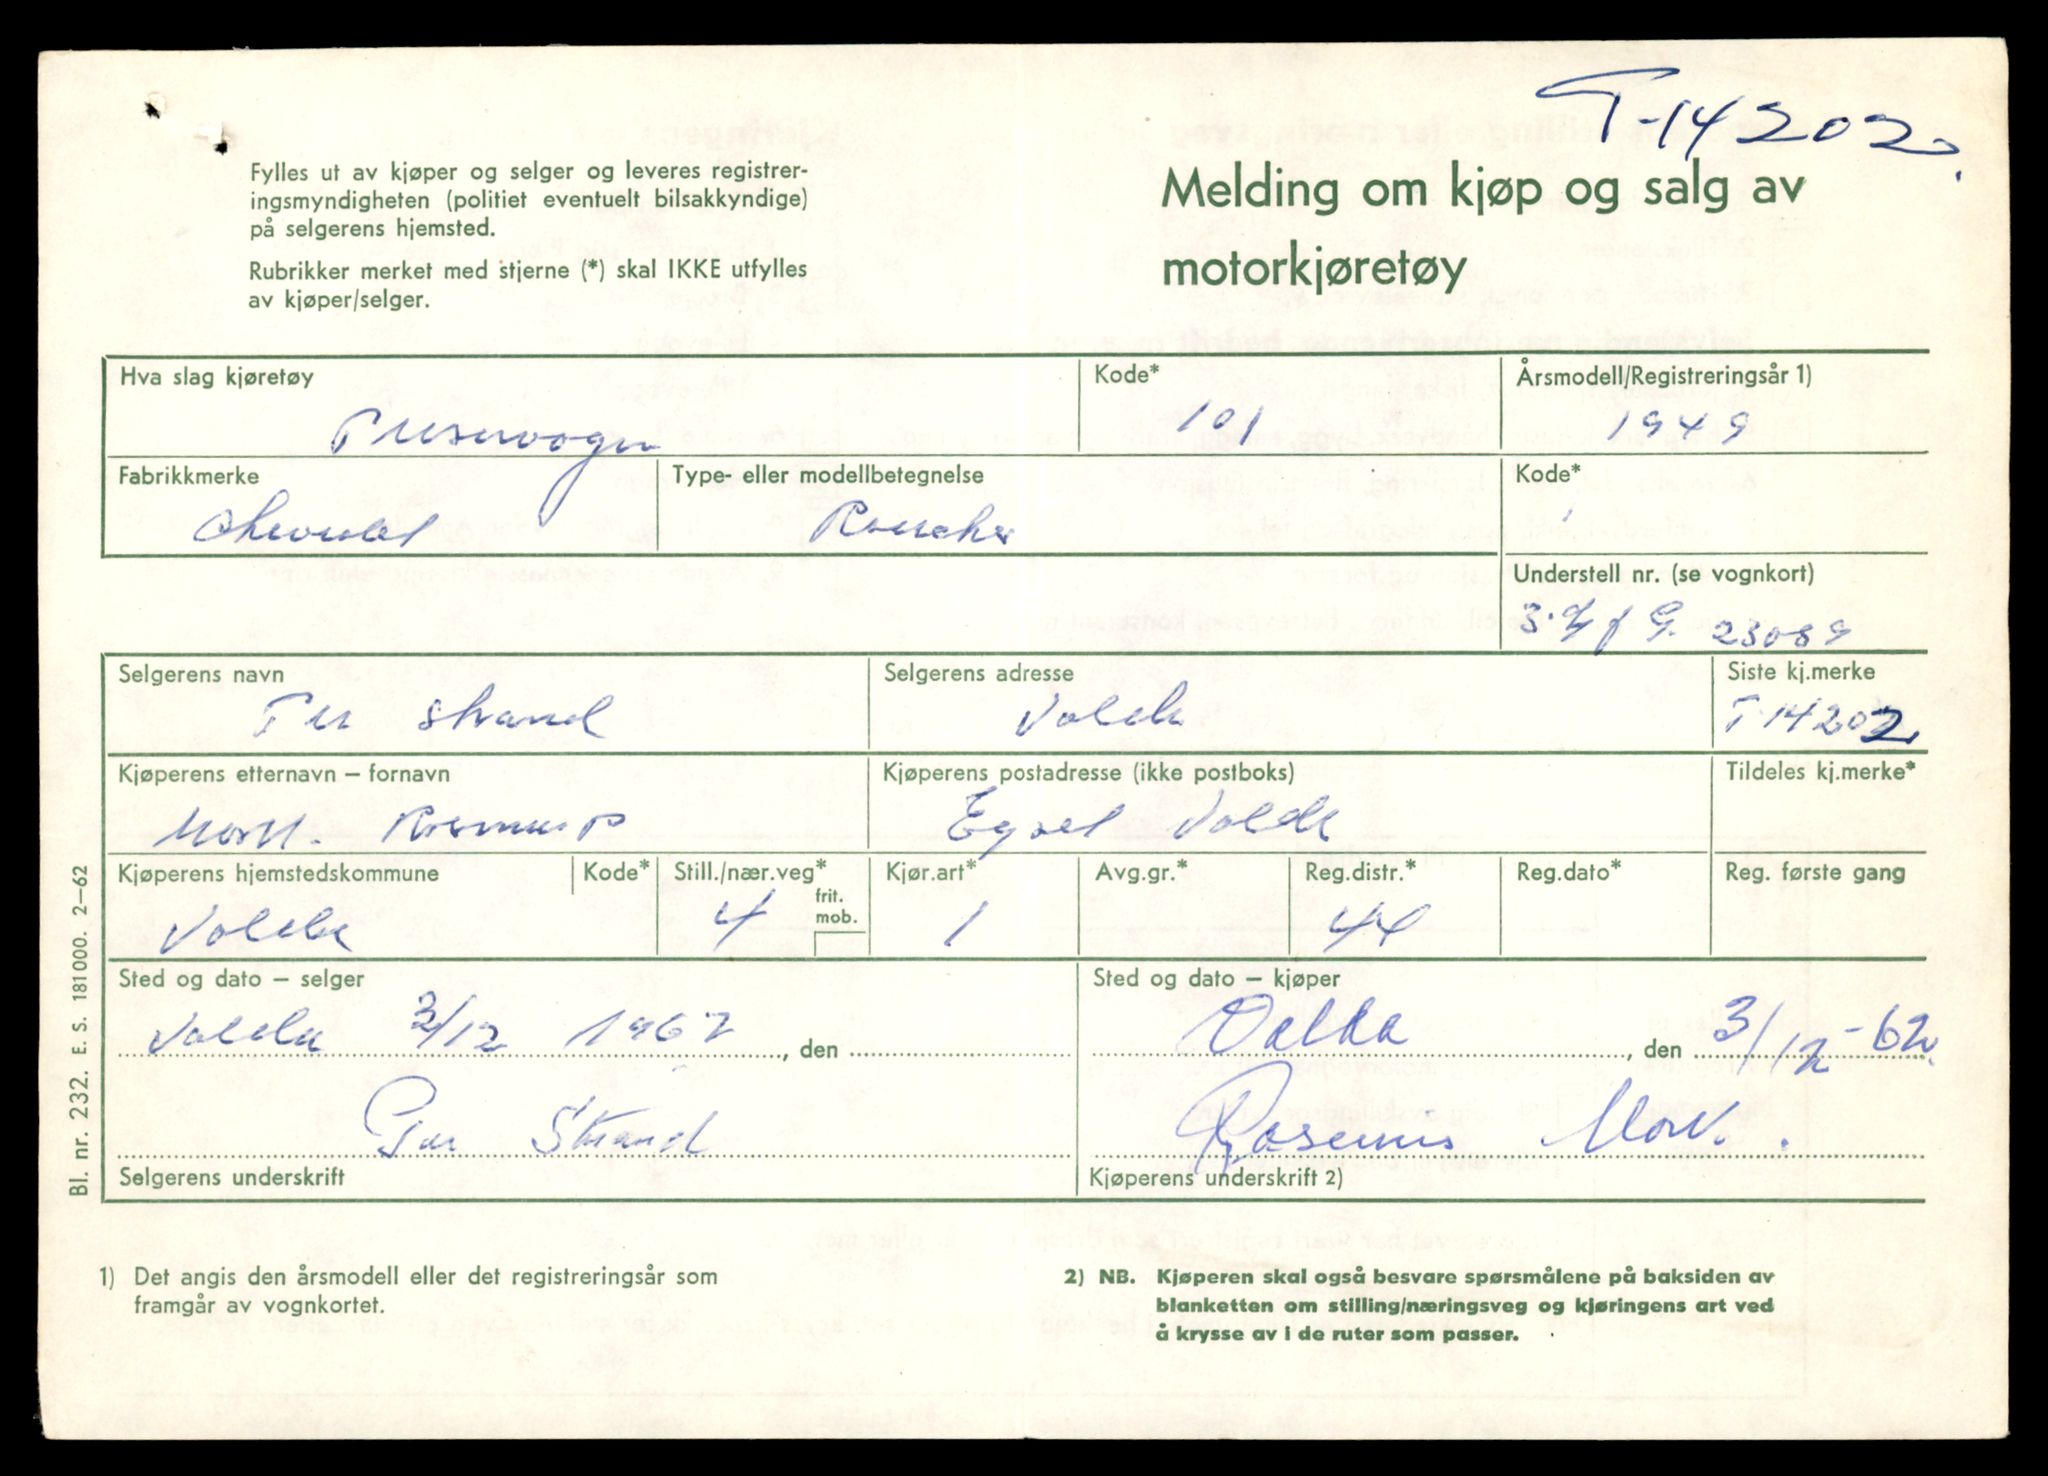 T-14202.
Fylles ut av kjøper og selger og leveres registrer-
ingsmyndigheten (politiet eventuelt bilsakkyndige)
på selgerens hjemsted.
Rubrikker merket med stjerne (*) skal IKKE utfylles
av kjøper/selger.
Melding om kjøp og salg av
motorkjøretøy
Hva slag kjøretøy
Kode*
Årsmodell/Registreringsår 1)
Personvogn
101
1949
Fabrikkmerke
Type- eller modellbetegnelse
Kode*
Chevrolet
Understell nr. (se vognkort)
23089
Selgerens navn
Selgerens adresse
Siste kj.merke
Per Strand
Volda
T-14202
Kjøperens etternavn – fornavn
Kjøperens postadresse (ikke postboks)
Tildeles kj.merke*
Rasmus P
Egset Volda
Kjøperens hjemstedskommune
Kode*
Still./nær.veg*
frit.
mob.
Kjør.art*
Avg.gr.*
Reg.distr.*
Reg.dato*
Reg. første gang
Volda
4
1
44
Sted og dato – selger
Sted og dato – kjøper
Volda 3/12 1962, den
Volda, den 3/12-62.
Per Strand
Rasmus
Selgerens underskrift
Kjøperens underskrift 2)
Bl. nr. 232. E. S. 181000. 2–62
1) Det angis den årsmodell eller det registreringsår som
framgår av vognkortet.
2) NB. Kjøperen skal også besvare spørsmålene på baksiden av
blanketten om stilling/næringsveg og kjøringens art ved
å krysse av i de ruter som passer.